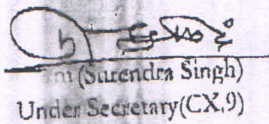 (Surendra Singh)
Under Secretary(CX.9)